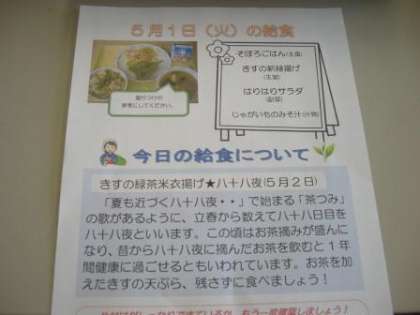 5月1日（火）の給食
そぼろごはん(主食)
きすの新緑揚げ
(主菜)
はりはりサラダ
(副菜)
じゃがいものみそ汁(汁物)
盛りつけの
参考にしてください。
今日の給食について
きすの緑茶米衣揚げ★八十八夜(5月2日)
「夏も近づく八十八夜・・」で始まる「茶つみ」
の歌があるように、立春から数えて八十八日目を
八十八夜といいます。この頃はお茶摘みが盛んに
なり、昔から八十八夜に摘んだお茶を飲むと1年
間健康に過ごせるともいわれています。お茶を加
えたきすの天ぷら、残さずに食べましょう！